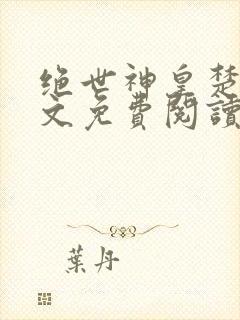 绝世神皇楚
文免費閱讀
葉丹